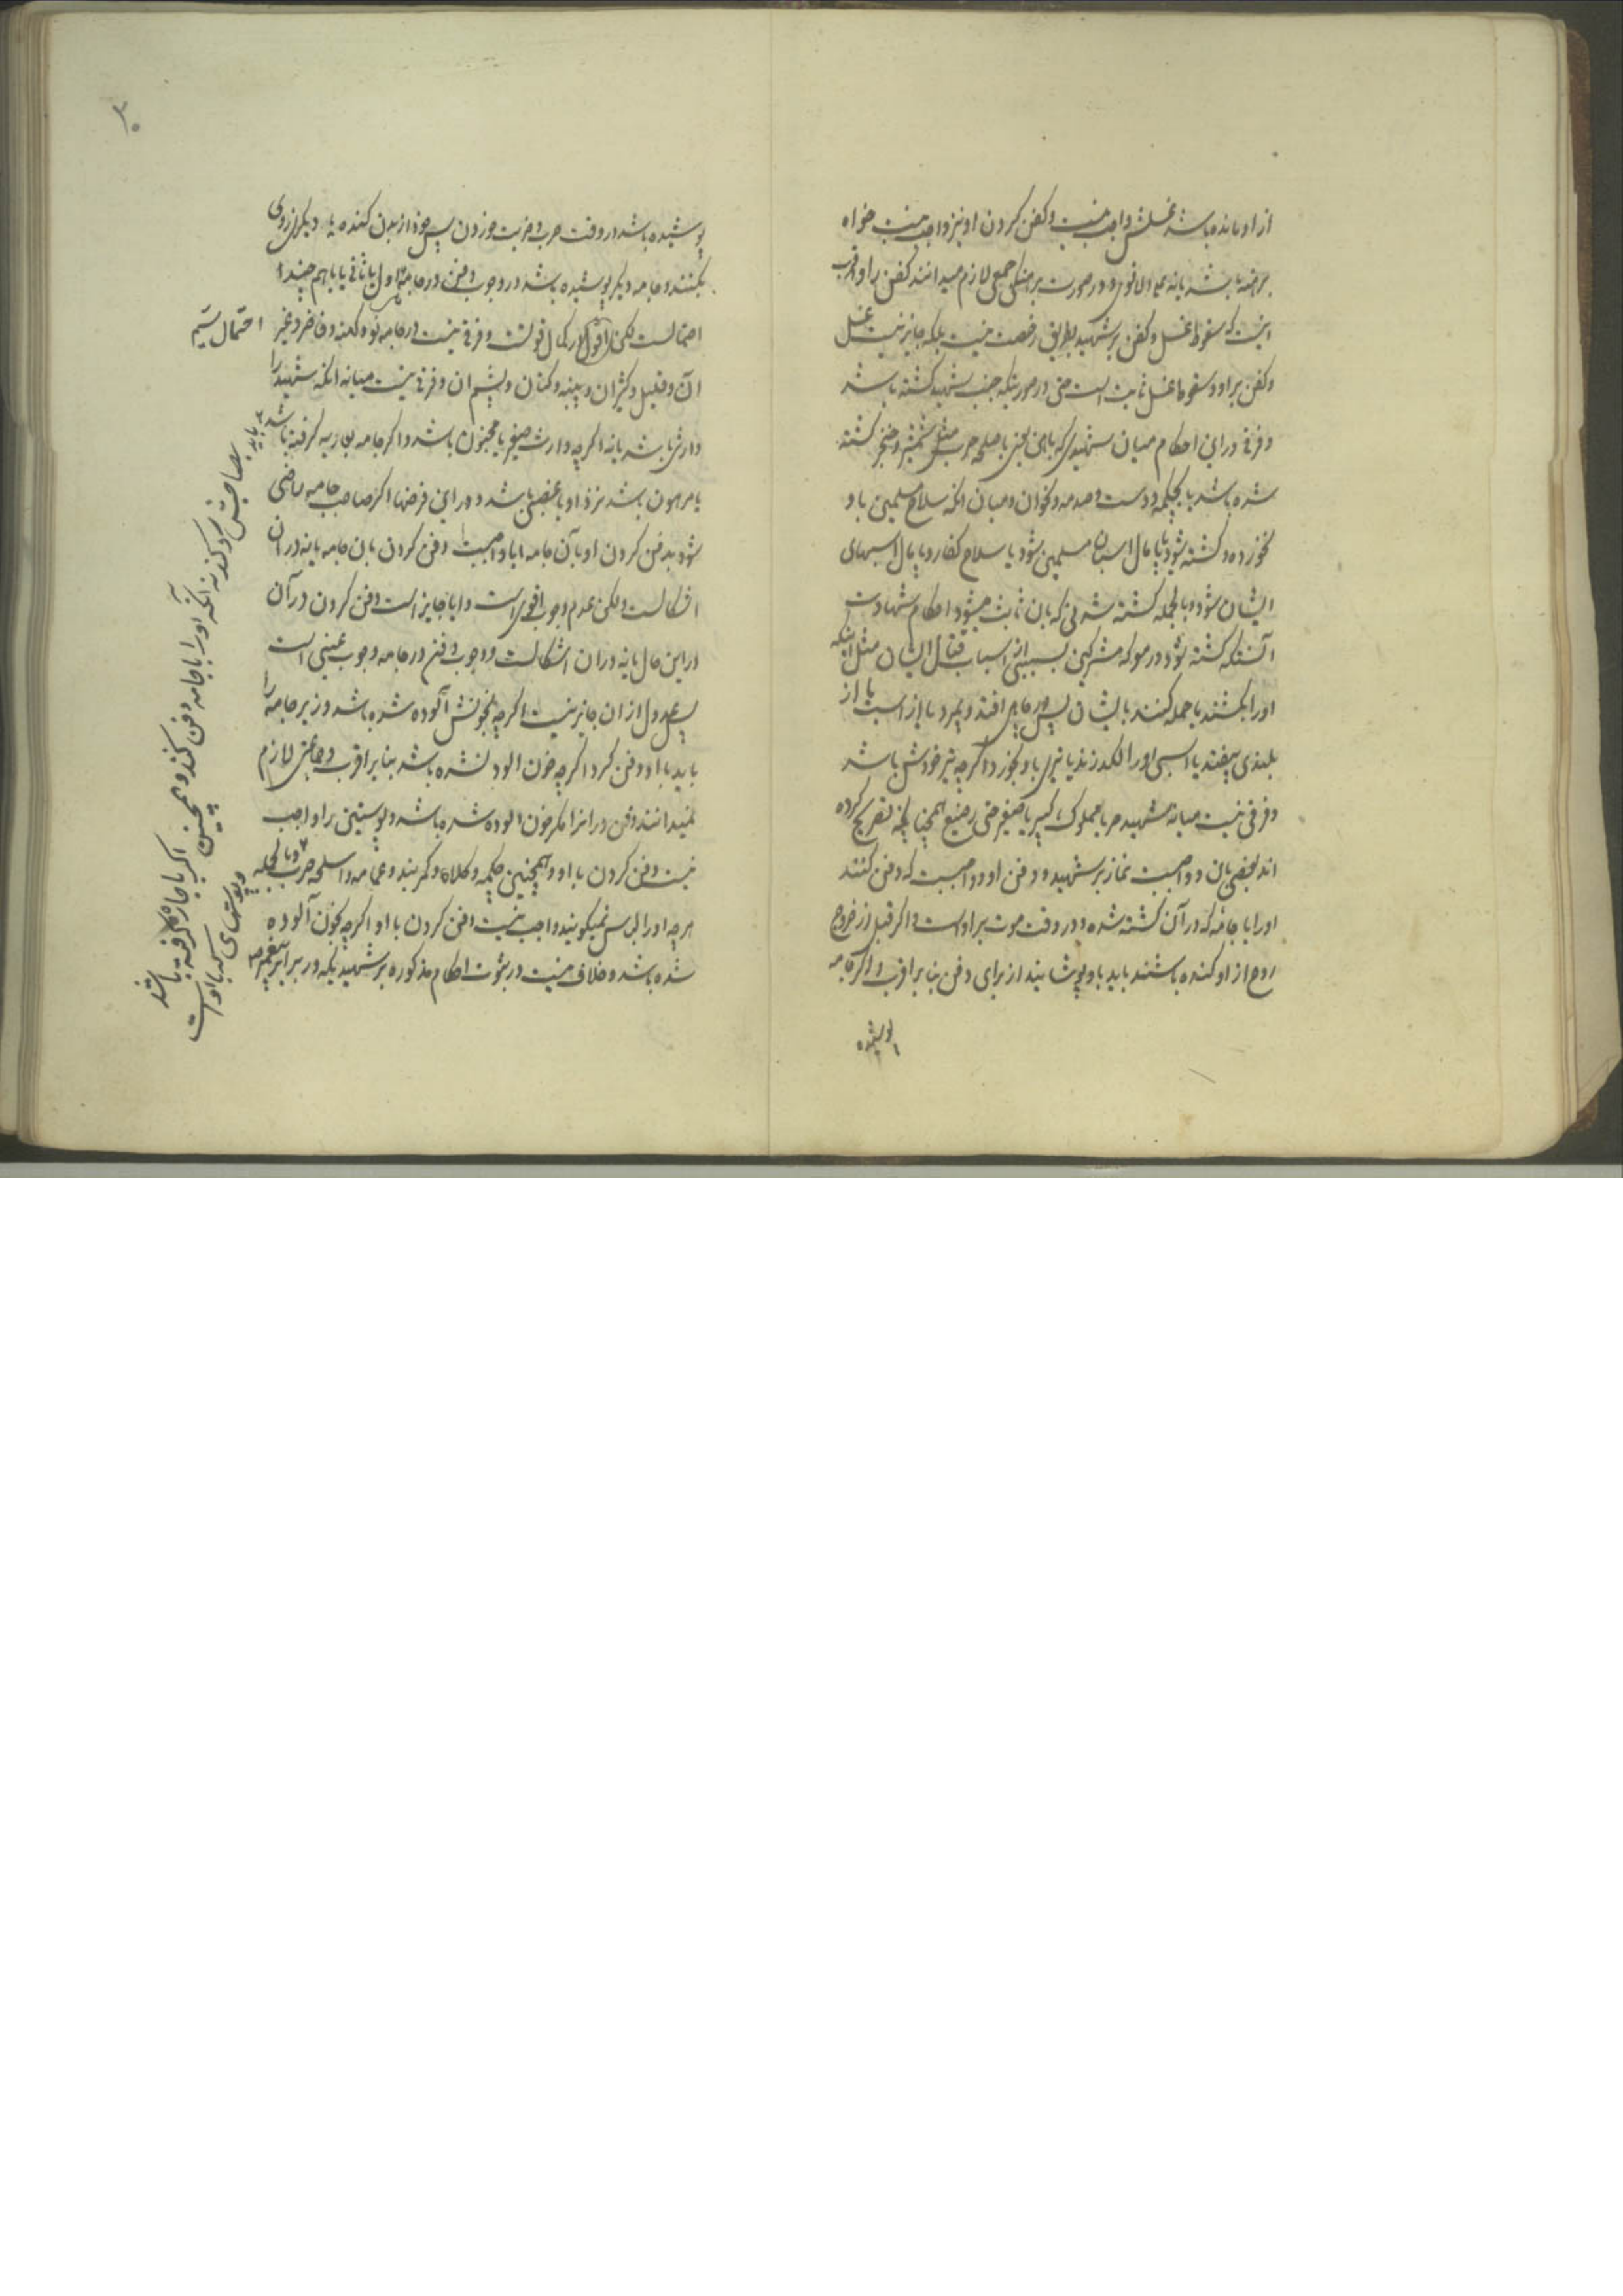 از او مانده باشد غسلش واجب نیست و کفن کردن او نیز واجب نیست خواه
برهنه باشد یا نه علی الاقوی و در صورت برهنگی جمعی لازم میدانند کفن را و اقرب
اینست که سقوط غسل و کفن بر شهید بطریق رخصت نیست بلکه جایز نیست غسل
و کفن بر او و سقوط غسل ثابت است حتی در صورتیکه جنب شهید کشته باشد
و فرقی در این احکام میان شهیدی که باهن یعنی باسلحه حرب مثل شمشیر و خنجر کشته
شده باشد یا بچکمه و دست و صدمه و نحو ان و میان انکه سلاح مسلمین باو
بخورد و کشته شود یا پامال اسبان مسلمین شود یا سلاح کفار و پامال اسبهای
ایشان شود و بالجمله کشته شدنی که بان ثابت میشود احکام شهادت
آنستکه کشته شود در معرکه مشرکین بسببی از اسباب قتال ایشان مثل اینکه
اورا بکشند یا حمله کنند بایشان پس در چاهی افتد و بمیرد یا از اسب یا از
بلندی بیفتد یا اسبی اورا لکد زند یا تیری باو بخورد اکرچه تیر خودش باشد
و فرقی نیست میانه شهید حر یا مملوک کبیر یا صغیر حتی رضیع همچنانچه تصریح کرده
اند بعضی بان و واجبست نماز بر شهید و دفن او و واجبست که دفن کنند
اورا با جامه که در آن کشته شده و در وقت موت بر او است و اکر قبل از خروج
روح از او کنده باشند باید باو پوشانیند از برای دفن بنابر اقرب و اکر جامه
پوشیده
۳۰
پوشیده باشد در وقت حرب و ضربت خوردن پس خود از بدن کنده یا دیکران از وی
بکنند و جامه دیکر پوشیده باشد در وجوب دفن در جامه اول یا ثانی یا باهم چند
احتمالست لکن اقوی در کمال قوتست و فرقی نیست در جامه نو و کهنه و فاخر و غیر
احتمال سیم
ان و قلیل و کثیر ان و پنبه و کتان و پشم ان و فرقی نیست میانه انکه شهید را
وارثی باشد یا نه اکرچه وارث صغیر یا مجنون باشد و اکر جامه بعاریه کرفته باشد
یا مرهون باشد نزد او یا غصبی باشد و در این فرضها اکر صاحب جامه راضی
شود بدفن کردن او بآن جامه ایا واجبست دفن کردن بان جامه یا نه در ان
اشکالست ولکن عدم وجوب اقوی است و ایا جایز است دفن کردن در آن
در این حال یا نه در ان اشکالست و وجوب دفن در جامه وجوب عینی است
پس عدول از ان جایز نیست اکرچه بخونش آلوده شده باشد و زیر جامه را
باید با او دفن کرد اکرچه خون الود نشده باشد بنابر اقرب و جماعتی لازم
نمیدانند دفن در انرا مکر خون الوده شده باشد و پوستین بر او واجب
نیست دفن کردن با او و همچنین چکمه و کلاه و کمربند و عمامه و اسلحه حرب و بالجمله
هرچه اورا لباس نمیکویند واجب نیست دفن کردن با او اکرچه بخون آلوده
شده باشد و خلافی نیست در ثبوت احکام مذکوره بر شهیدیکه در برابر پیغمبر
باید بصاحبش رد کنند نه انکه اورا باجامه دفن کنند و همچنین اکر باجاره کرفته باشد
و پوستهای که با او است